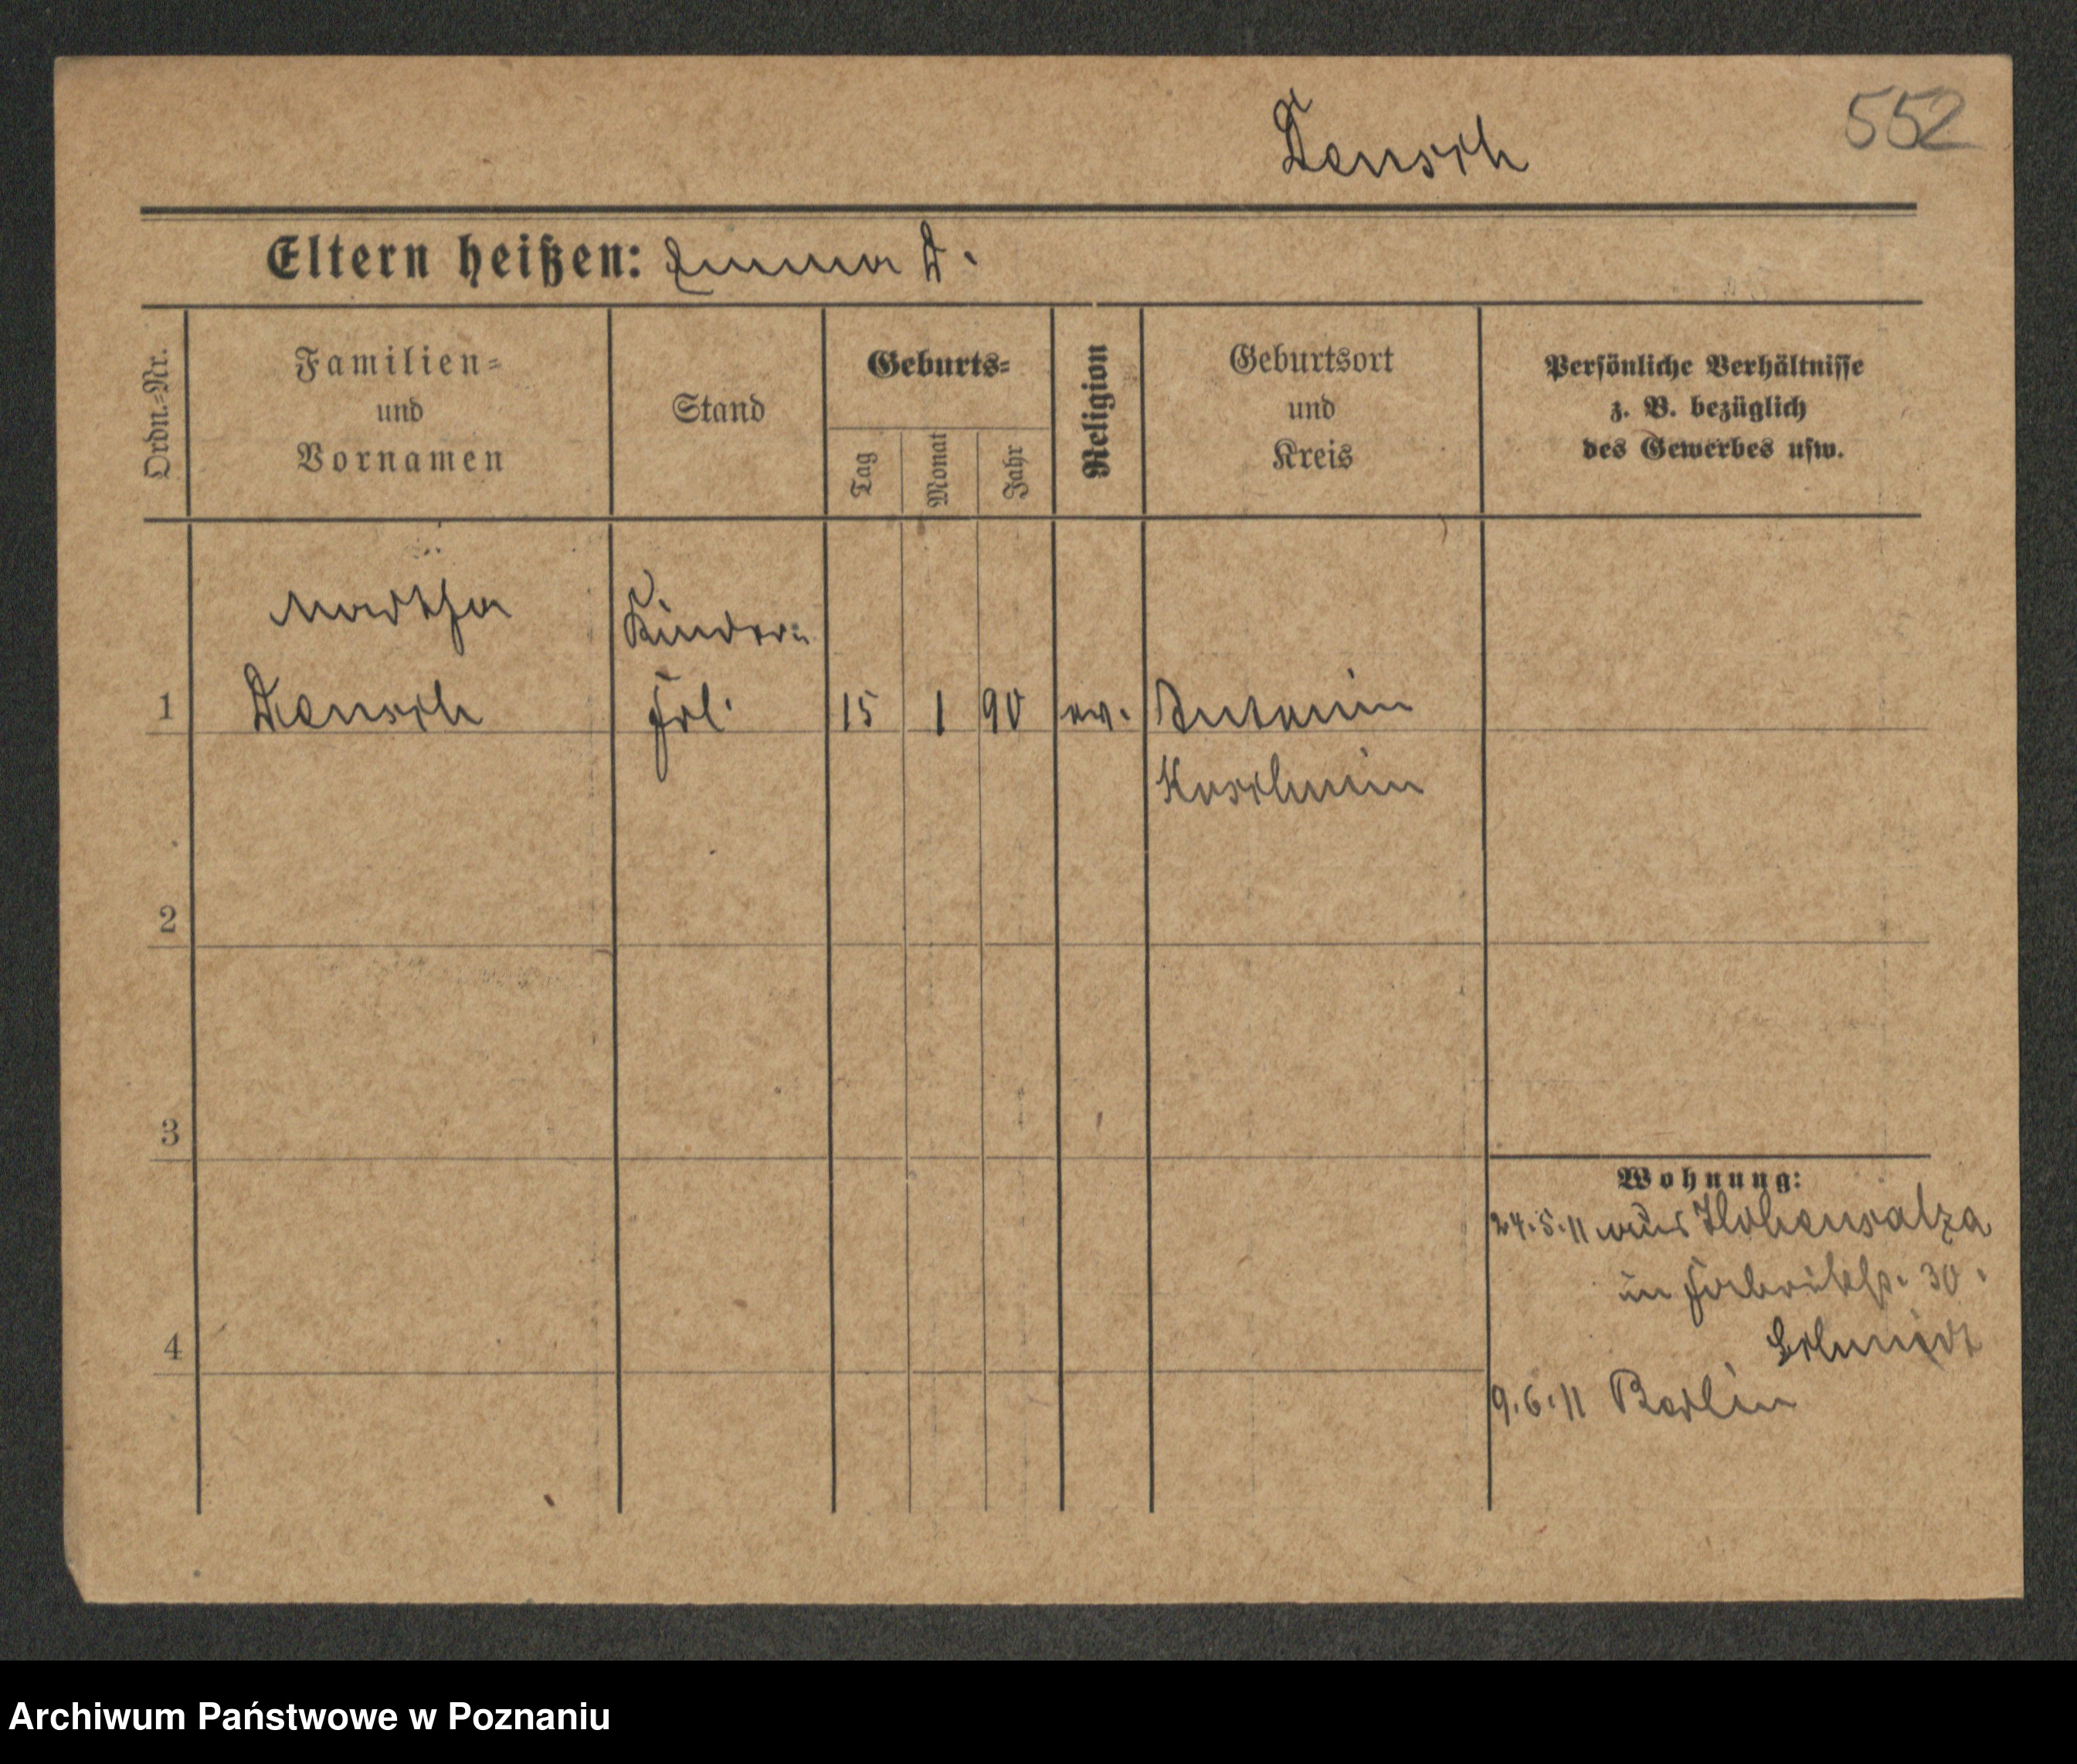 552
Densch
Eltern heißen: Emma D.
Ordn.-Nr.
Familien-
und
Vornamen
Stand
Geburts-
Tag
Monat
Jahr
Religion
Geburtsort
und
Kreis
Persönliche Verhältnisse
z. B. bezüglich
des Gewerbes usw.
Martha
Kinder-
1 Densch Frl. 15 1 90 ev. Antonin
Koschmin
2
3
4
Wohnung:
24.5.11 aus Hohensalza
in Fabrikstr. 30.
Schmidt
9.6.11 Berlin
Archiwum Państwowe w Poznaniu